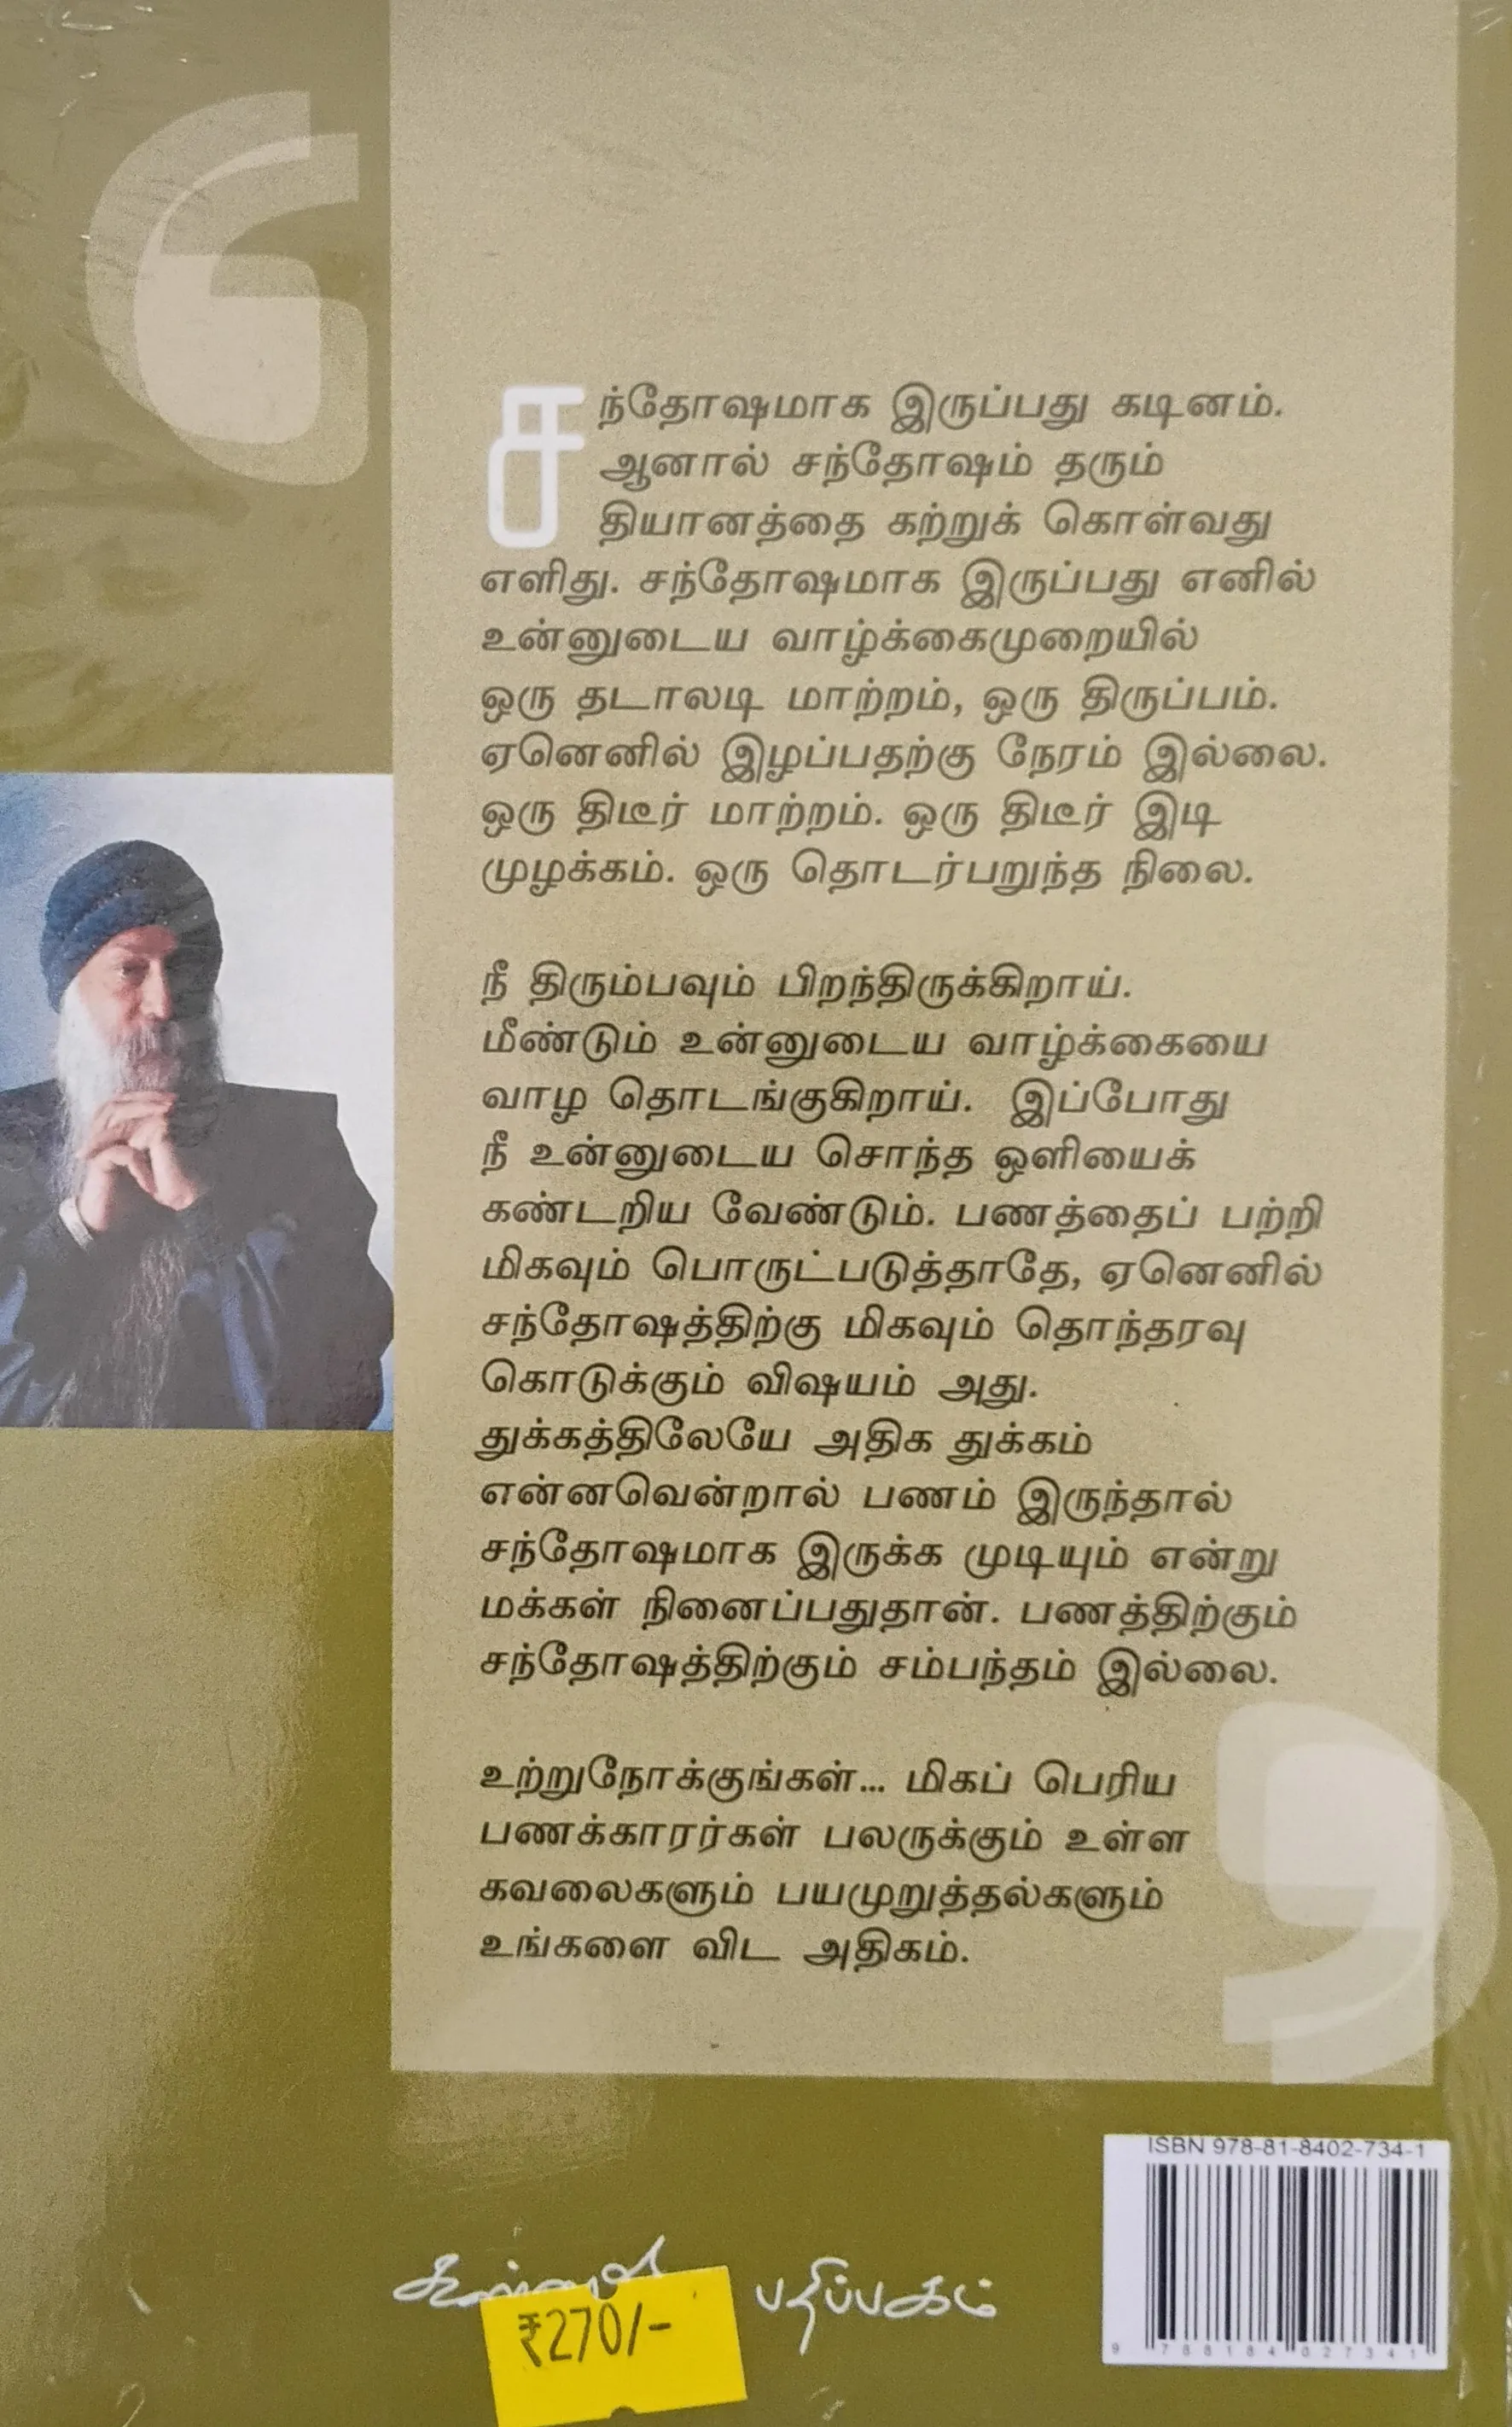 சந்தோஷமாக இருப்பது கடினம்.
ஆனால் சந்தோஷம் தரும்
தியானத்தை கற்றுக் கொள்வது
எளிது. சந்தோஷமாக இருப்பது எனில்
உன்னுடைய வாழ்க்கைமுறையில்
ஒரு தடாலடி மாற்றம், ஒரு திருப்பம்.
ஏனெனில் இழப்பதற்கு நேரம் இல்லை.
ஒரு திடீர் மாற்றம். ஒரு திடீர் இடி
முழக்கம். ஒரு தொடர்பறுந்த நிலை.
நீ திரும்பவும் பிறந்திருக்கிறாய்.
மீண்டும் உன்னுடைய வாழ்க்கையை
வாழ தொடங்குகிறாய். இப்போது
நீ உன்னுடைய சொந்த ஒளியைக்
கண்டறிய வேண்டும். பணத்தைப் பற்றி
மிகவும் பொருட்படுத்தாதே, ஏனெனில்
சந்தோஷத்திற்கு மிகவும் தொந்தரவு
கொடுக்கும் விஷயம் அது.
துக்கத்திலேயே அதிக துக்கம்
என்னவென்றால் பணம் இருந்தால்
சந்தோஷமாக இருக்க முடியும் என்று
மக்கள் நினைப்பதுதான். பணத்திற்கும்
சந்தோஷத்திற்கும் சம்பந்தம் இல்லை.
உற்றுநோக்குங்கள்... மிகப் பெரிய
பணக்காரர்கள் பலருக்கும் உள்ள
கவலைகளும் பயமுறுத்தல்களும்
உங்களை விட அதிகம்.
ISBN 978-81-8402-734-1
9 788184 027341
பதிப்பகம்
₹270/-